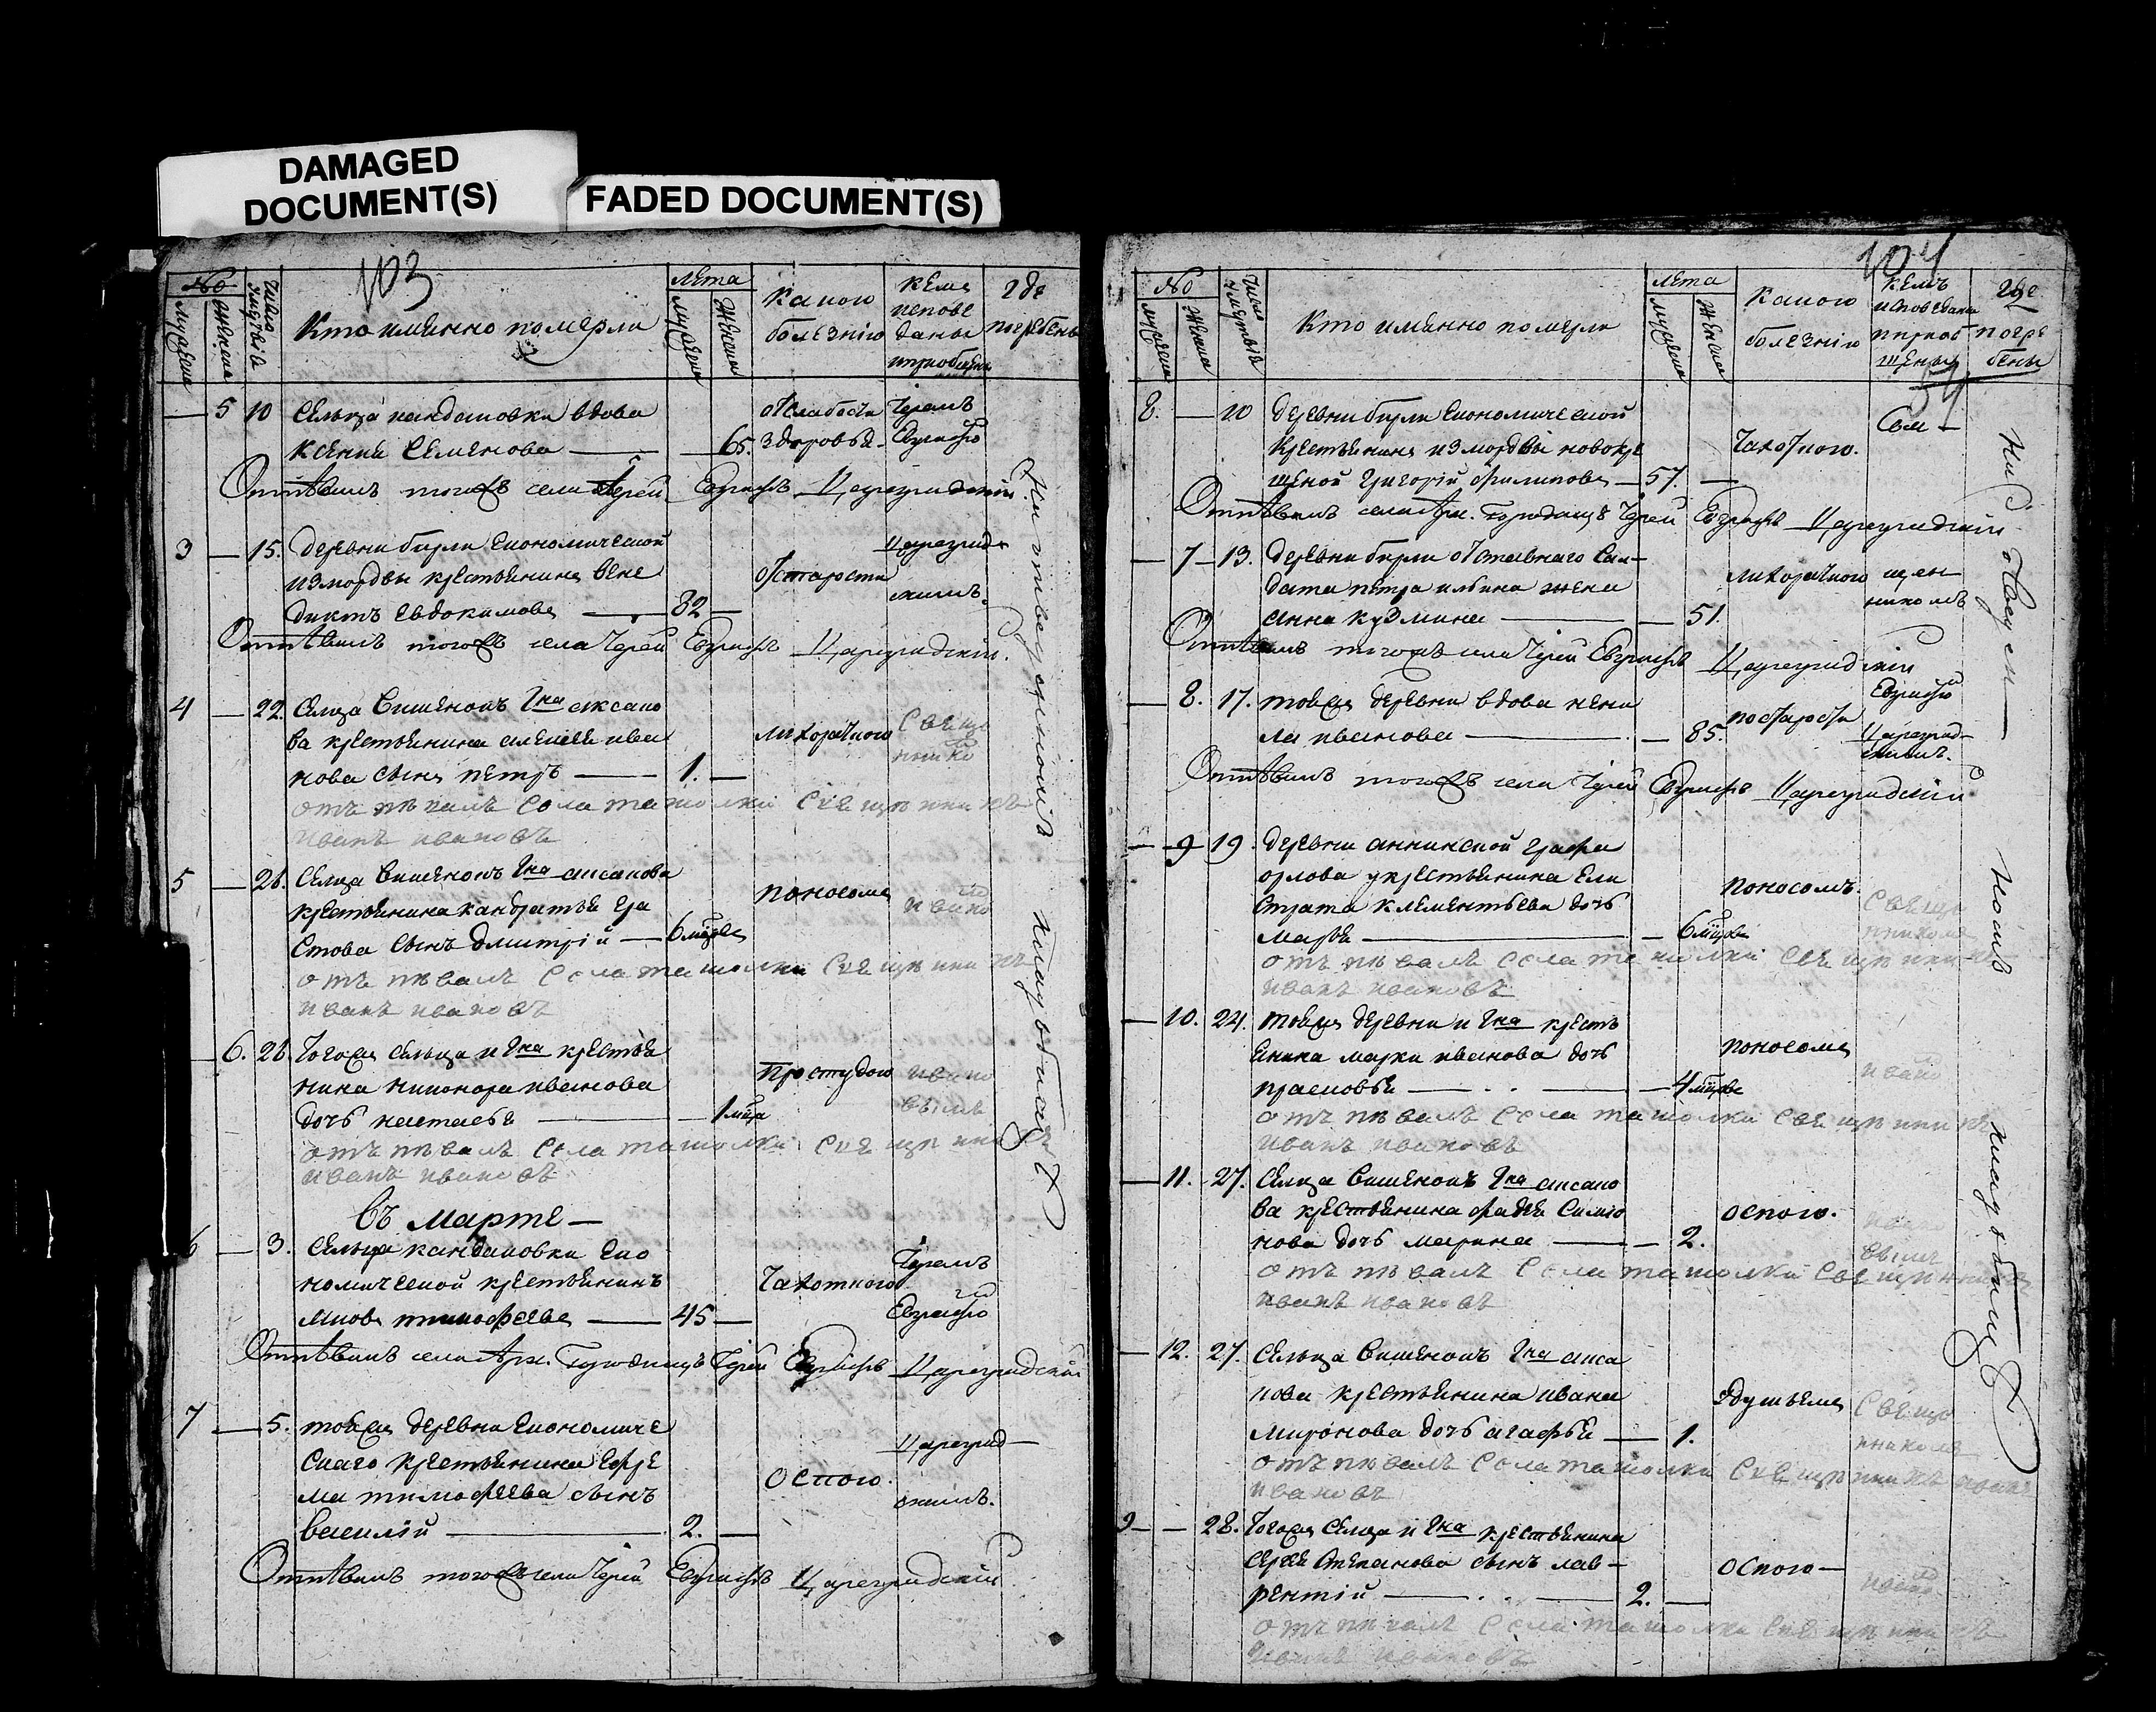 DAMAGED
DOCUMENT(S)
FADED DOCUMENT(S)
103
№
мужеска
женска
число умертвия
Кто именно померли
лета
мужеска
женска
какою
болезнию
кемъ
испове
даны
и приобщены
где
погребены
5 10 Сельца кандаловки вдова
Ксения Семенова — 65.
от слабости
здоровья
Иереемъ
Евграфо
Отпевалъ тогожъ села Иерей Евграфъ Цареградский
3 — 15. деревни бирли економической
из мордвы крестьянинъ Вене
диктъ Евдокимовъ — 82 —
от старости
Цареград
скимъ.
Отпевалъ тогожъ села Иерей Евграфъ Цареградский.
4 — 22. Сельца Вишенокъ Гна аксако
ва крестьянина алексея ива
нова сынъ петръ — 1. —
лихорадкою
Свеще
нико
отъ певалъ села ташолки свещенникъ
иванъ ивановъ
5 — 26. Сельца Вишенокъ Гна аксакова
крестьянина кандратья
стова сынъ дмитрий — 6 мцовъ
поносомъ
ивано
отъ певалъ села ташолки свещенникъ
иванъ ивановъ
6. 26. Тогожъ сельца и Гна крестья
нина никонора иванова
дочь настасья — 1 мца
простудою
ивано
вымъ
отъ певалъ села ташолки свещенни
иванъ ивановъ
Въ Марте —
6 — 3. Сельца кандаловки еко
номической крестьянинъ
тимофеевъ — 45 —
Чахоткою
Иереемъ
Евграфо
Отпевалъ села Арх. Городищъ Иерей Евграфъ Цареградский
7 — 5. тойжъ деревни економиче
скаго крестьянина ефре
ма тимофеева сынъ
василий — 2. —
оспою.
Цареград
скимъ.
Отпевалъ тогожъ села Иерей Евграфъ Цареградский
104
№
мужеска
женска
число умертвия
Кто именно померли
лета
мужеска
женска
какою
болезнию
кемъ
исповеданы
и приоб
щены
где
погре
бены
8. — 10 деревни бирли економической
крестьянинъ из мордвы новокре
щеной григорий филиповъ — 57. —
Чахоткою.
Отпевалъ села Арх. Городищъ Иерей Евграфъ Цареградский
— 7 — 13. деревни бирли отставнаго сал—
дата петра ильина жена
анна кузмина — 51.
лихорадкою
щен
никомъ
Отпевалъ тогожъ села Иерей Евграфъ Цареградский
— 8. 17. тойжъ деревни вдова нени
ла иванова — 85.
по старости
Евграфо
Цареград
скимъ.
Отпевалъ тогожъ села Иерей Евграфъ Цареградский
— 9 19. деревни аннинской графа
орлова крестьянина
страта клементьева дочь
марья — 6 мцовъ
поносомъ.
Свеще
нникомъ
отъ певалъ села ташолки свещенни
иванъ ивановъ
— 10. 24. тойжъ деревни и Гна кресть
янина марки иванова дочь
прасковья — 4 мцовъ
поносомъ
ивано
отъ певалъ села ташолки свещенникъ
иванъ ивановъ
— 11. 27. Сельца Вишенокъ Гна аксако
ва крестьянина фадея симио
нова дочь марина — 2.
оспою.
ивано
вымъ
отъ певалъ села ташолки свещенникъ
иванъ ивановъ
— 12. 27. Сельца Вишенокъ Гна акса
кова крестьянина ивана
миронова дочь агафья — 1.
удушьемъ
Свеще
нникомъ
отъ певалъ села ташолки свещенникъ иванъ
ивановъ
9 — — 28. Тогожъ сельца и Гна крестьянина
сергея степанова сынъ лав—
рентий — 2. —
оспою —
ивано
отъ певалъ села ташолки свещенникъ
иванъ ивановъ